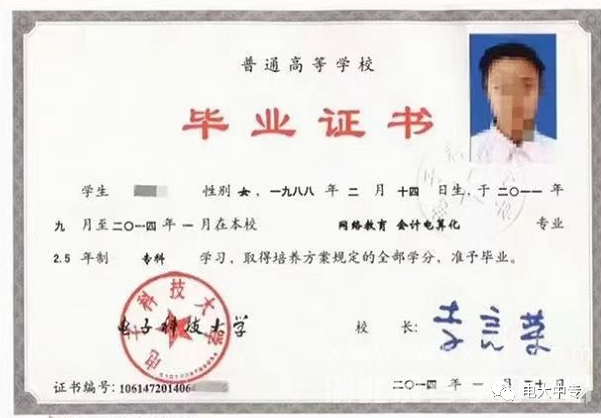 普通高等学校
毕业证书
学生 性别 女, 一九八八 年 二 月 十四 日生, 于 二〇一一 年
九 月至 二〇一四 年 一 月在本校 网络教育 会计电算化 专业
2.5 年制 专科 学习, 取得培养方案规定的全部学分, 准予毕业。
电子科技大学
电子科技大学
校 长:
证书编号: 106147201406
二〇一四 年 一 月 日
电大中专